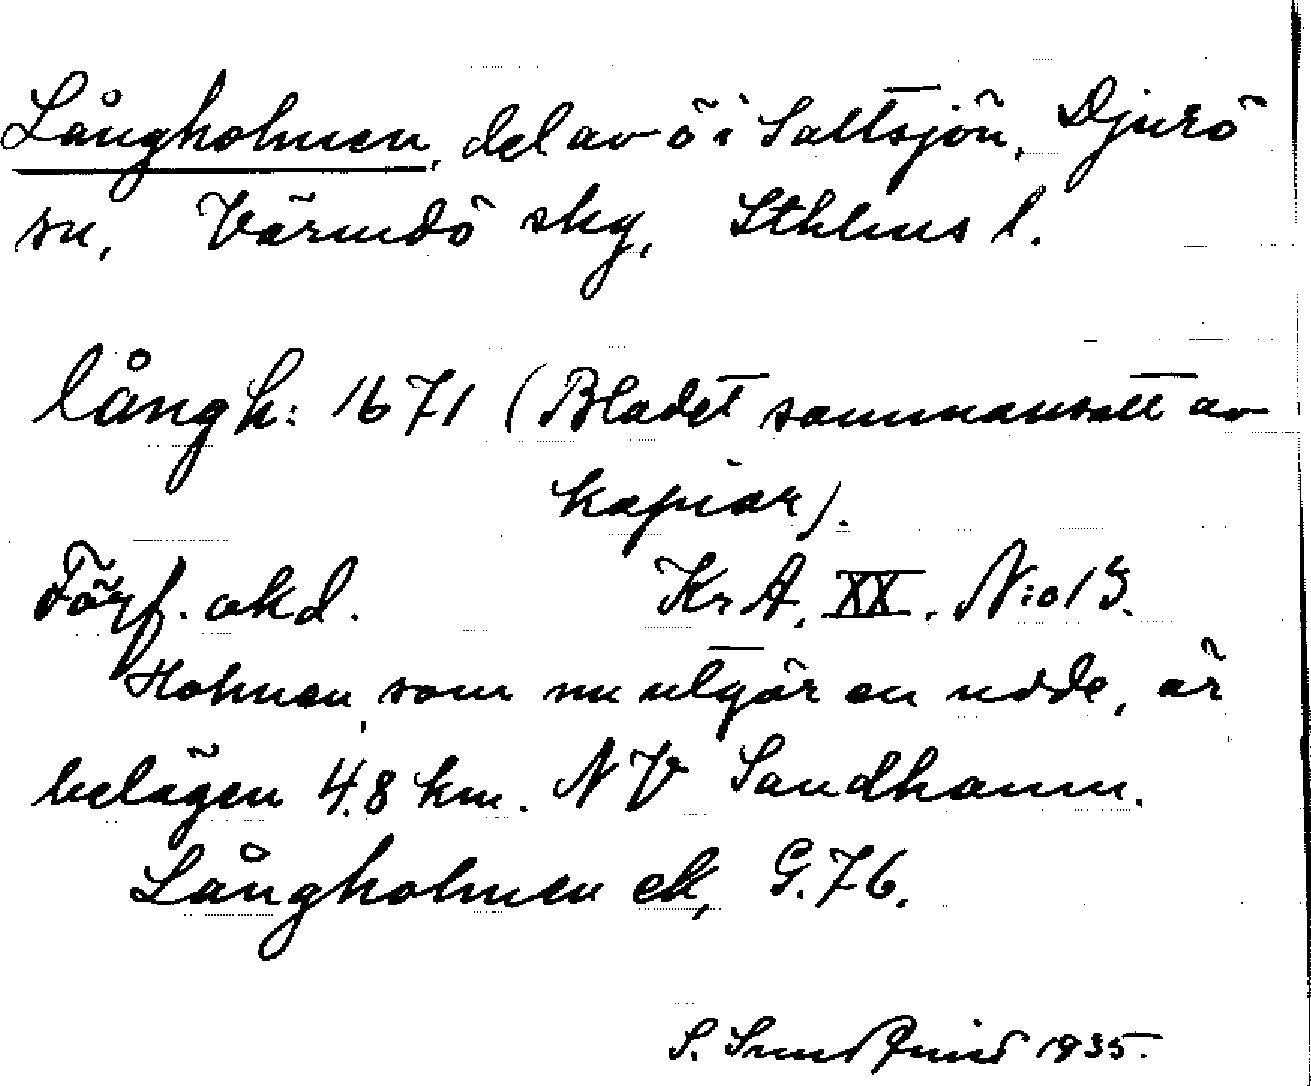 Långholmen, del av ö i Saltsjön, Djurö
sn, Värmdö skg, Sthlms l.
långh: 1671 (Bladet sammansatt av
kopior).
Förf. okd. KrA, XX. N:o 13.
Holmen, som nu utgör en udde, är
belägen 4.8 km. NV Sandhamn.
Långholmen ek, G.76.
S. Sundquist 1935.